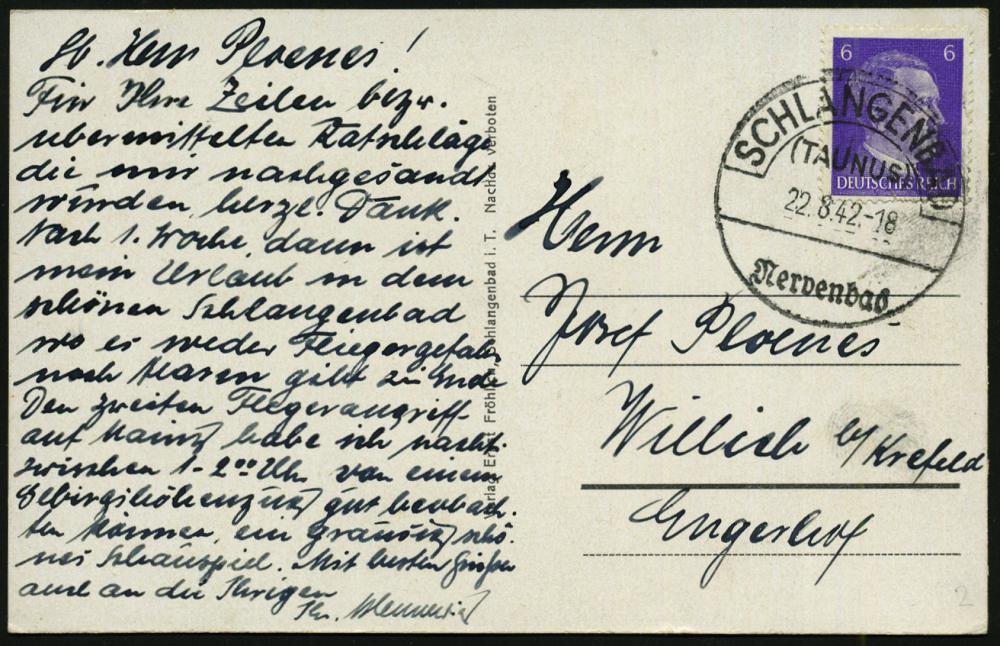 Lb. Herr Ploenes!
Für Ihre Zeilen bezw.
uebermittelten Ratschläge
die mir nachgesandt
würden, herzl. Dank.
Noch 1. Woche, dann ist
mein Urlaub in dem
schönen Schlangenbad
wo es weder Fliegergefahr
noch Alarm gibt zu Ende
Den zweiten Fliegerangriff
auf Mainz habe ich nachts
zwischen 1-2⁰⁰ Uhr von einem
Gebirgshöhenzug gut beobach-
ten können, ein grausig schö-
nes Schauspiel. Mit besten Grüßen
auch an die Ihrigen
Ihr.
Verlag Ernst Fröhlich, Schlangenbad i. T. Nachdr. verboten
6 6
DEUTSCHES REICH
SCHLANGENBAD
(TAUNUS)
22.8.42-18
Nervenbad
Herrn
Josef Ploenes
Willich b/Krefeld
Engerhof
2